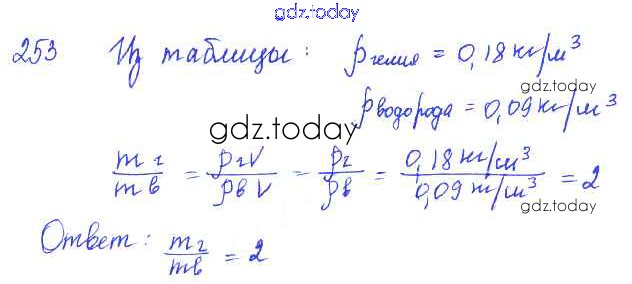 gdz.today
253 Из таблицы: ρгелия = 0,18 кг/м³
gdz.today
ρводорода = 0,09 кг/м³
gdz.today
mг/mв = ρгV/ρвV = ρг/ρв = 0,18 кг/м³/0,09 кг/м³ = 2
gdz.today
Ответ: mг/mв = 2